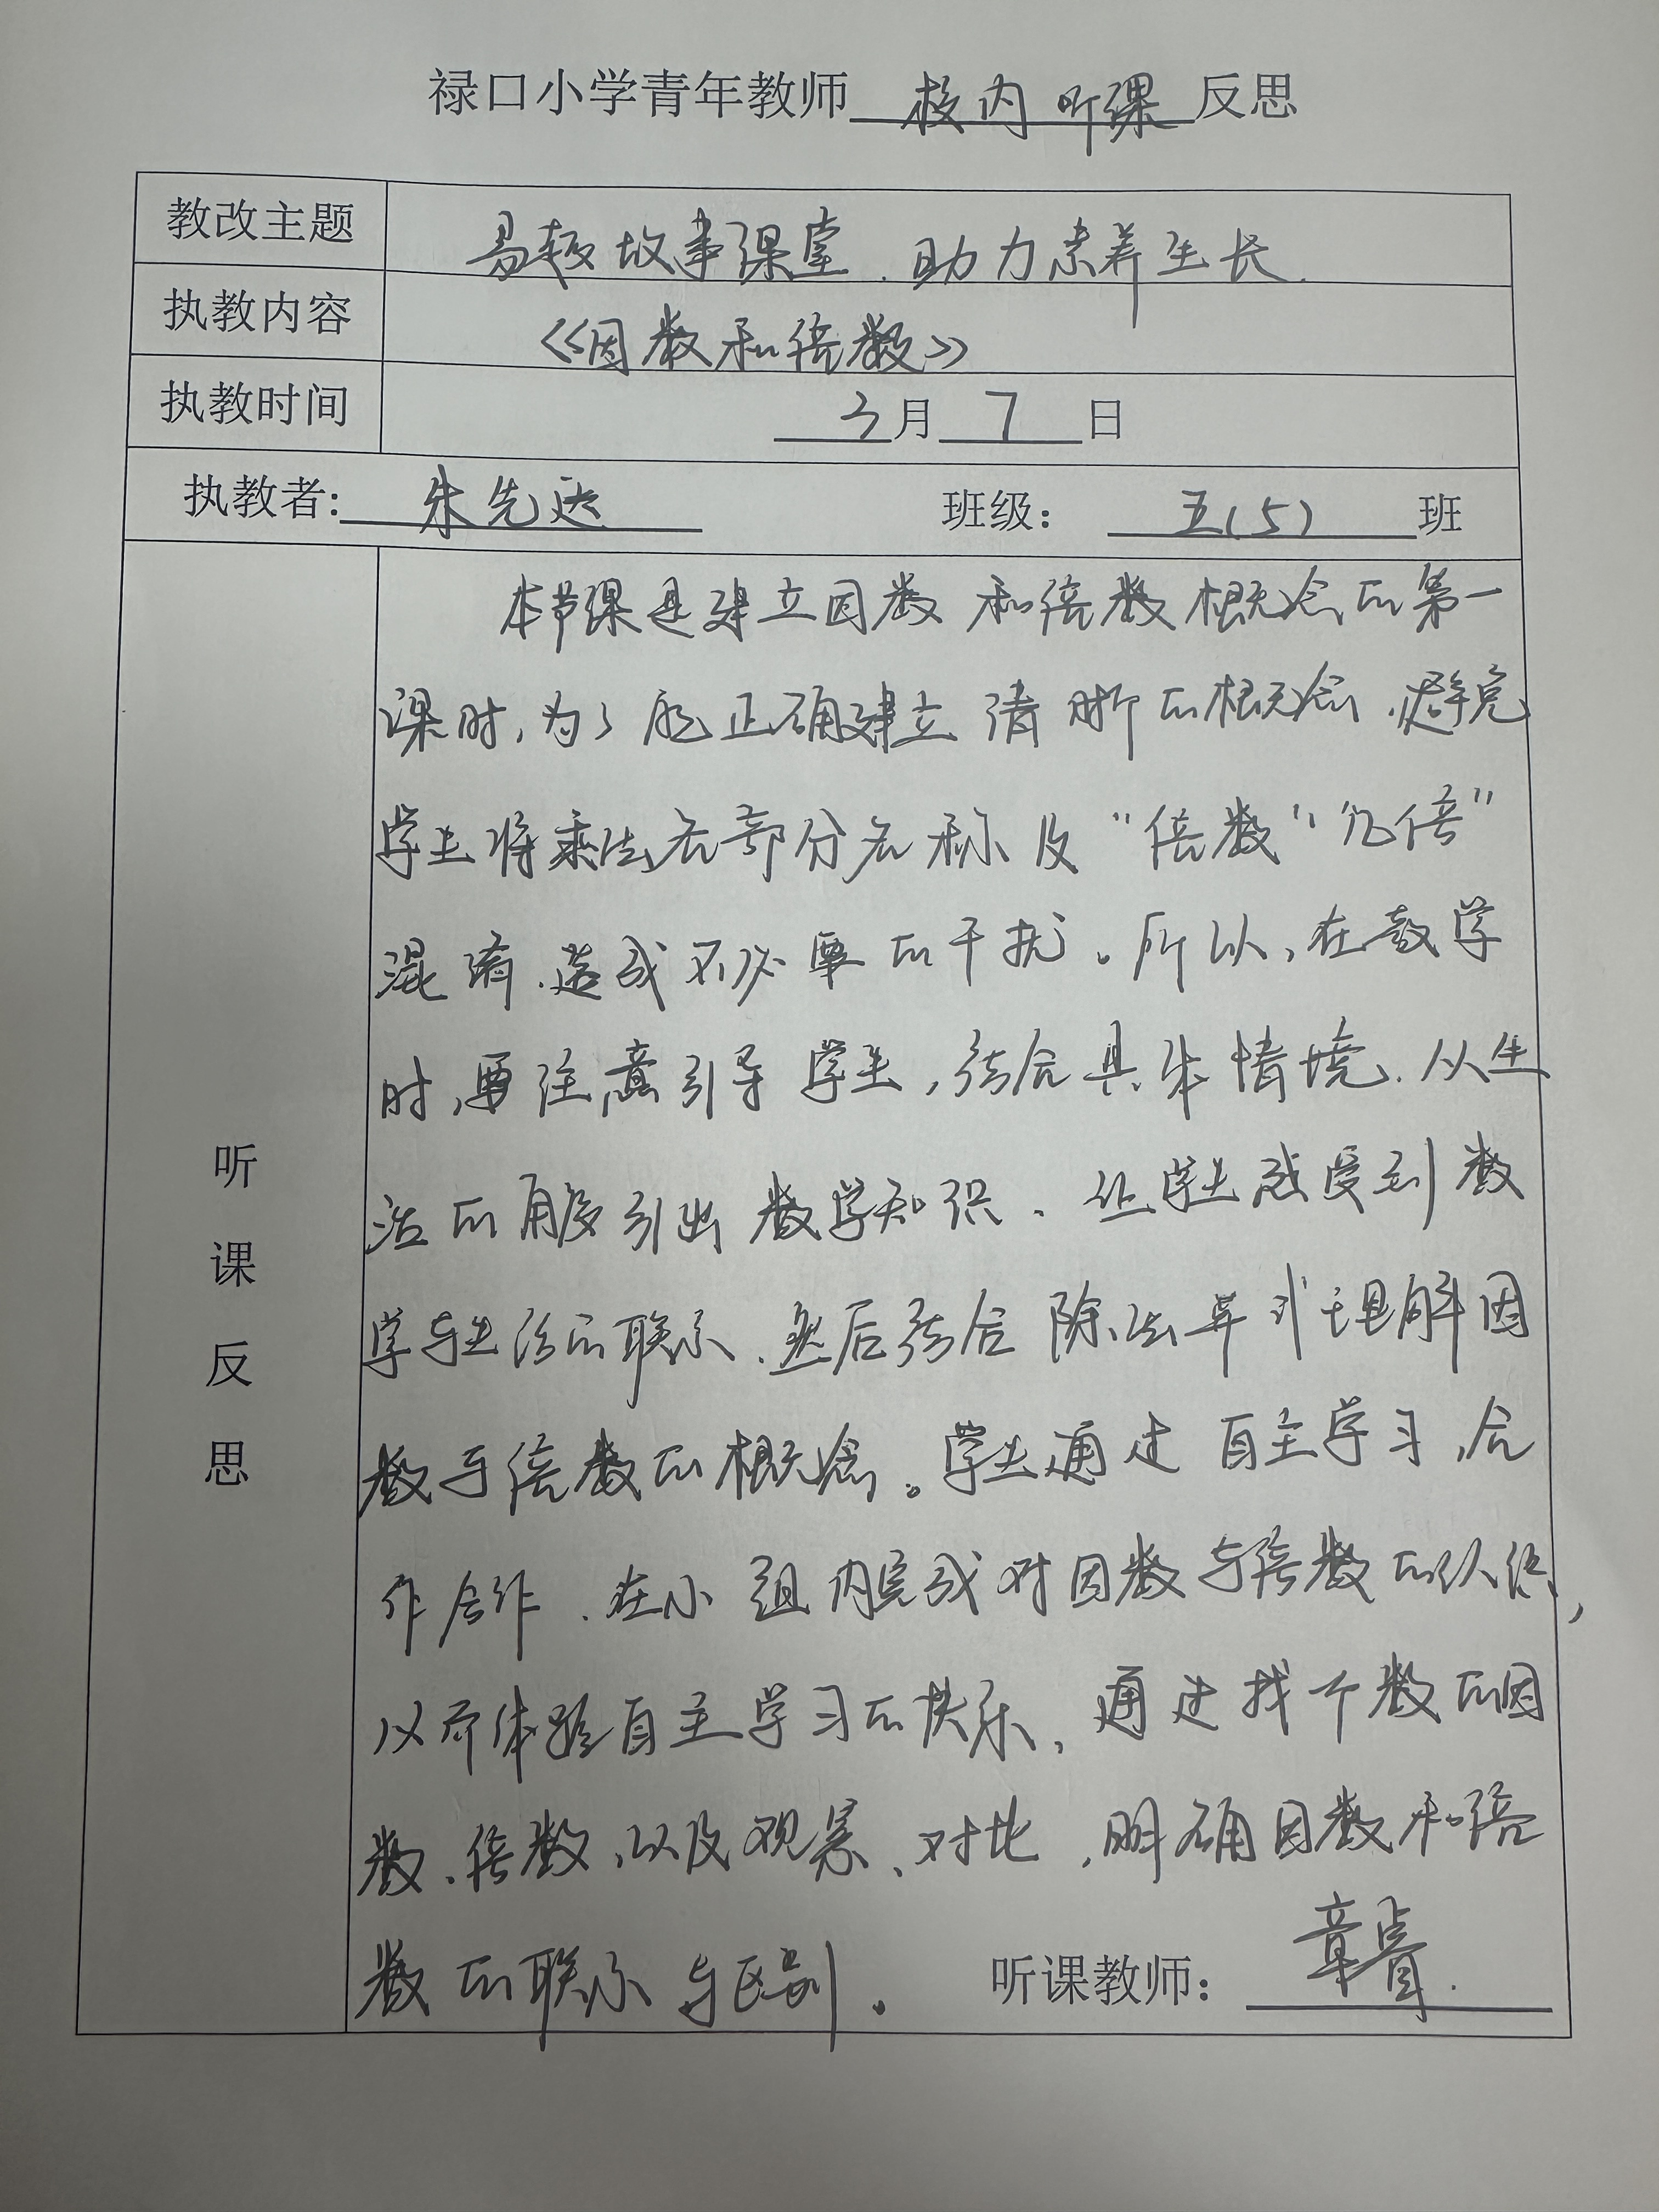 禄口小学青年教师校内听课反思
教改主题 易趣故事课堂、助力素养生长.
执教内容 《因数和倍数》
执教时间 3月7日
执教者: 朱先达 班级: 五(5)班
听课反思
本节课是建立因数和倍数概念的第一
课时,为了能正确建立清晰的概念,避免
学生将乘法各部分名称及“倍数”“几倍”
混淆,造成不必要的干扰。所以,在教学
时,要注意引导学生,结合具体情境.从生
活的角度引出数学知识、让学生感受到数
学与生活的联系、然后结合除法算式理解因
数与倍数的概念。学生通过自主学习,合
作合作、在小组内完成对因数与倍数的认识,
从而体验自主学习的快乐、通过找个数的因
数、倍数、以及观察、对比,明确因数和倍
数的联系与区别。 听课教师: 章